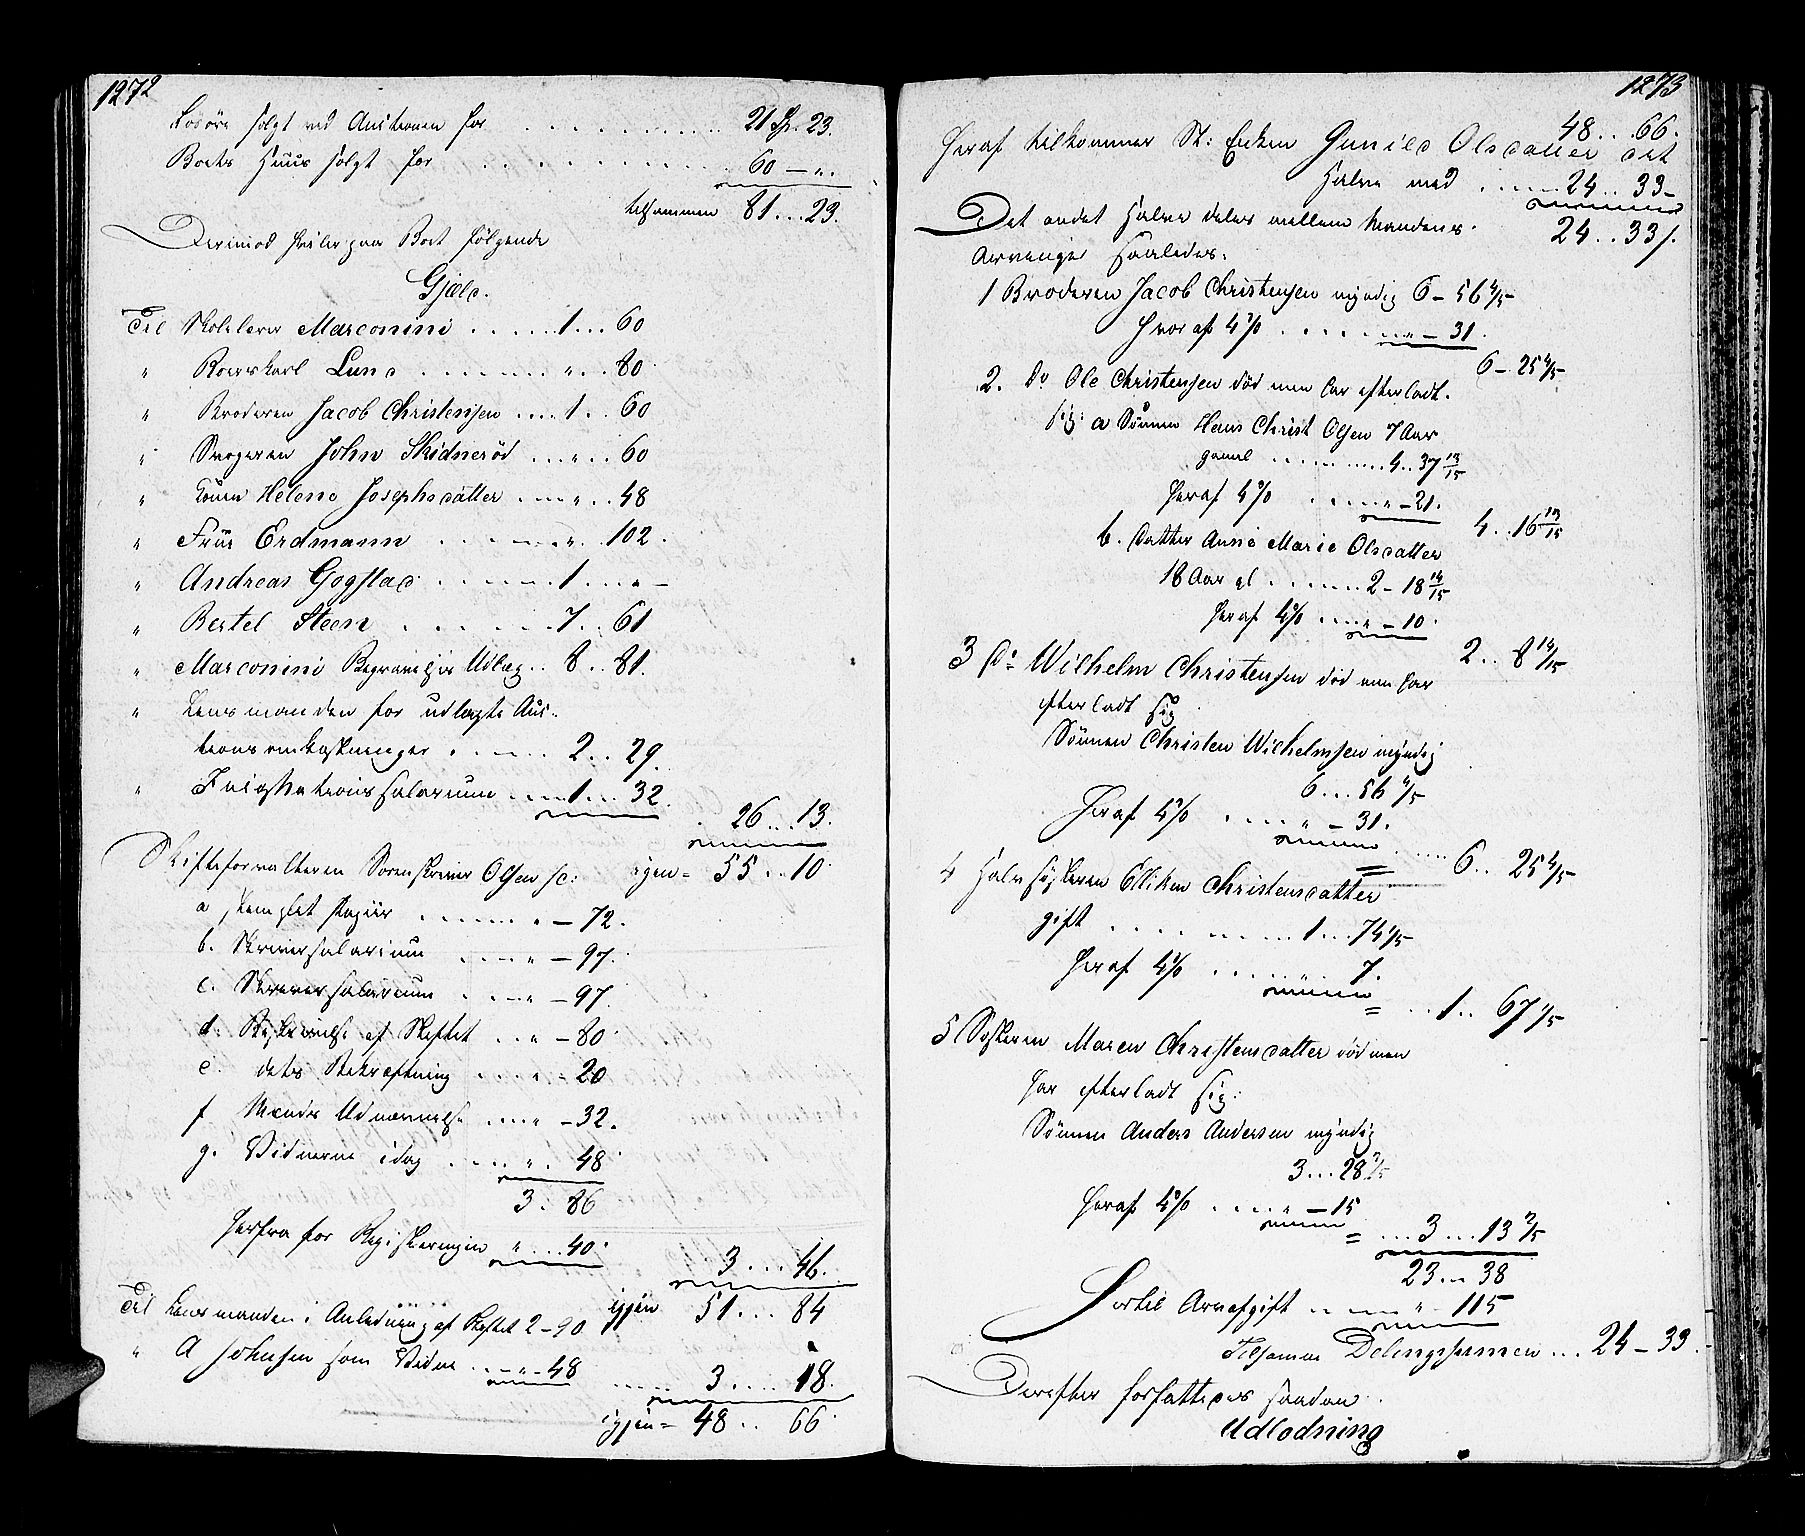 1272
Losøre solgt ved Auctionen for . . . . . 21 Sp. 23.
Boets Huus solgt for . . . . . 60 – „.
tilsammen 81 . . . 23.
Derimod hviler paa Boet følgende
Gjæld.
Til Skolelærer Marconini . . . . 1 . . . 60
„ Roerskarl Lund . . . . „ . . 80
„ Broderen Jacob Christensen . . . . 1 . . 60
„ Svogeren John Skidnerød . . . „ . . 60
„ Konen Helene Josephsdatter . . . „ . . 48
„ Frue Erdmann . . . . „ . . 102
„ Andreas Gogstad . . . . 1 . . „ –
„ Bertel Steen . . . . 7 . . 61
„ Marconini Begravelses Udlæg . . 8 . . 81.
„ Lensmanden for udlagte Auc-
tionsomkostninger . . . . 2 . . 29.
„ Incassationssalarium . . . . 1 . . . 32.
26 . . 13.
Skifteforvalteren Sorenskriver Olsen sc: igjen = 55 . . 10
a stemplet Papiir . . . . „ – 72.
b. Skriversalarium . . . . „ – 97.
c. Skriversalarium . . . . „ – 97.
d. Beskrivelse af Skiftet . . „ – 80
e. dets Bekræftning . . . . „ – 20
f Mænds Udnævnelse . . . „ – 32.
g. Vidnerne idag . . . . „ . 48
3 . 86
herfra for Registeringen „ . . . 40.
3 . . . 46.
igjen 51 . . . 84
Til Lensmanden i Anledning af Skiftet 2 – 90
„ A Johnsen som Vidne . . . „ – 48
. . . . 3 . . . . 18.
igjen = 48 . . 66
1273
48 . . 66.
Heraf tilkommer St: Enken Gunild Olsdatter det
halve med . . . . 24 . . 33 –
24 . . 33/.
Det andet Halve deles mellem Mandens
Arvinger saaledes:
1 Broderen Jacob Christensen myndig 6 – 56 4/5
hvoraf 4% . . . . „ – 31.
6 – 25 4/5
2. Do Ole Christensen død men har efterladt
sig: a Sønnen Hans Christ Olsen 7 Aar
gammel . . . . 4 . . 37 13/15
heraf 4% . . . . „ – 21.
4 . . 16 13/15
b. Datter Anne Marie Olsdatter
18 Aar gl . . . . 2 – 18 14/15
heraf 4% . . . . „ – 10.
2 . . 8 14/15
3 Do Wilhelm Christensen død men har
efterladt sig
Sønnen Christen Wilhelmsen myndig
6 . . . 56 4/5
Heraf 4% . . . . „ – 31.
6 . . 25 4/5
4 Halvsøsteren Elliken Christensdatter
gift . . . . 1 . . . 74 1/5
heraf 4% . . . . 7.
= . . 1 . . 67 1/5
5 Søsteren Maren Christensdatter død men
har efterladt sig:
Sønnen Anders Andersen myndig
3 . . . 28 2/5
heraf 4% . . . . „ – 15
= . . . 3 . . . 13 2/5
23 . . „ 38
Hertil Arveafgift . . . „ – 115
Tilsamme Delingssummen . . . 24 – 33.
Derefter forfattedes saadan
Udlodning